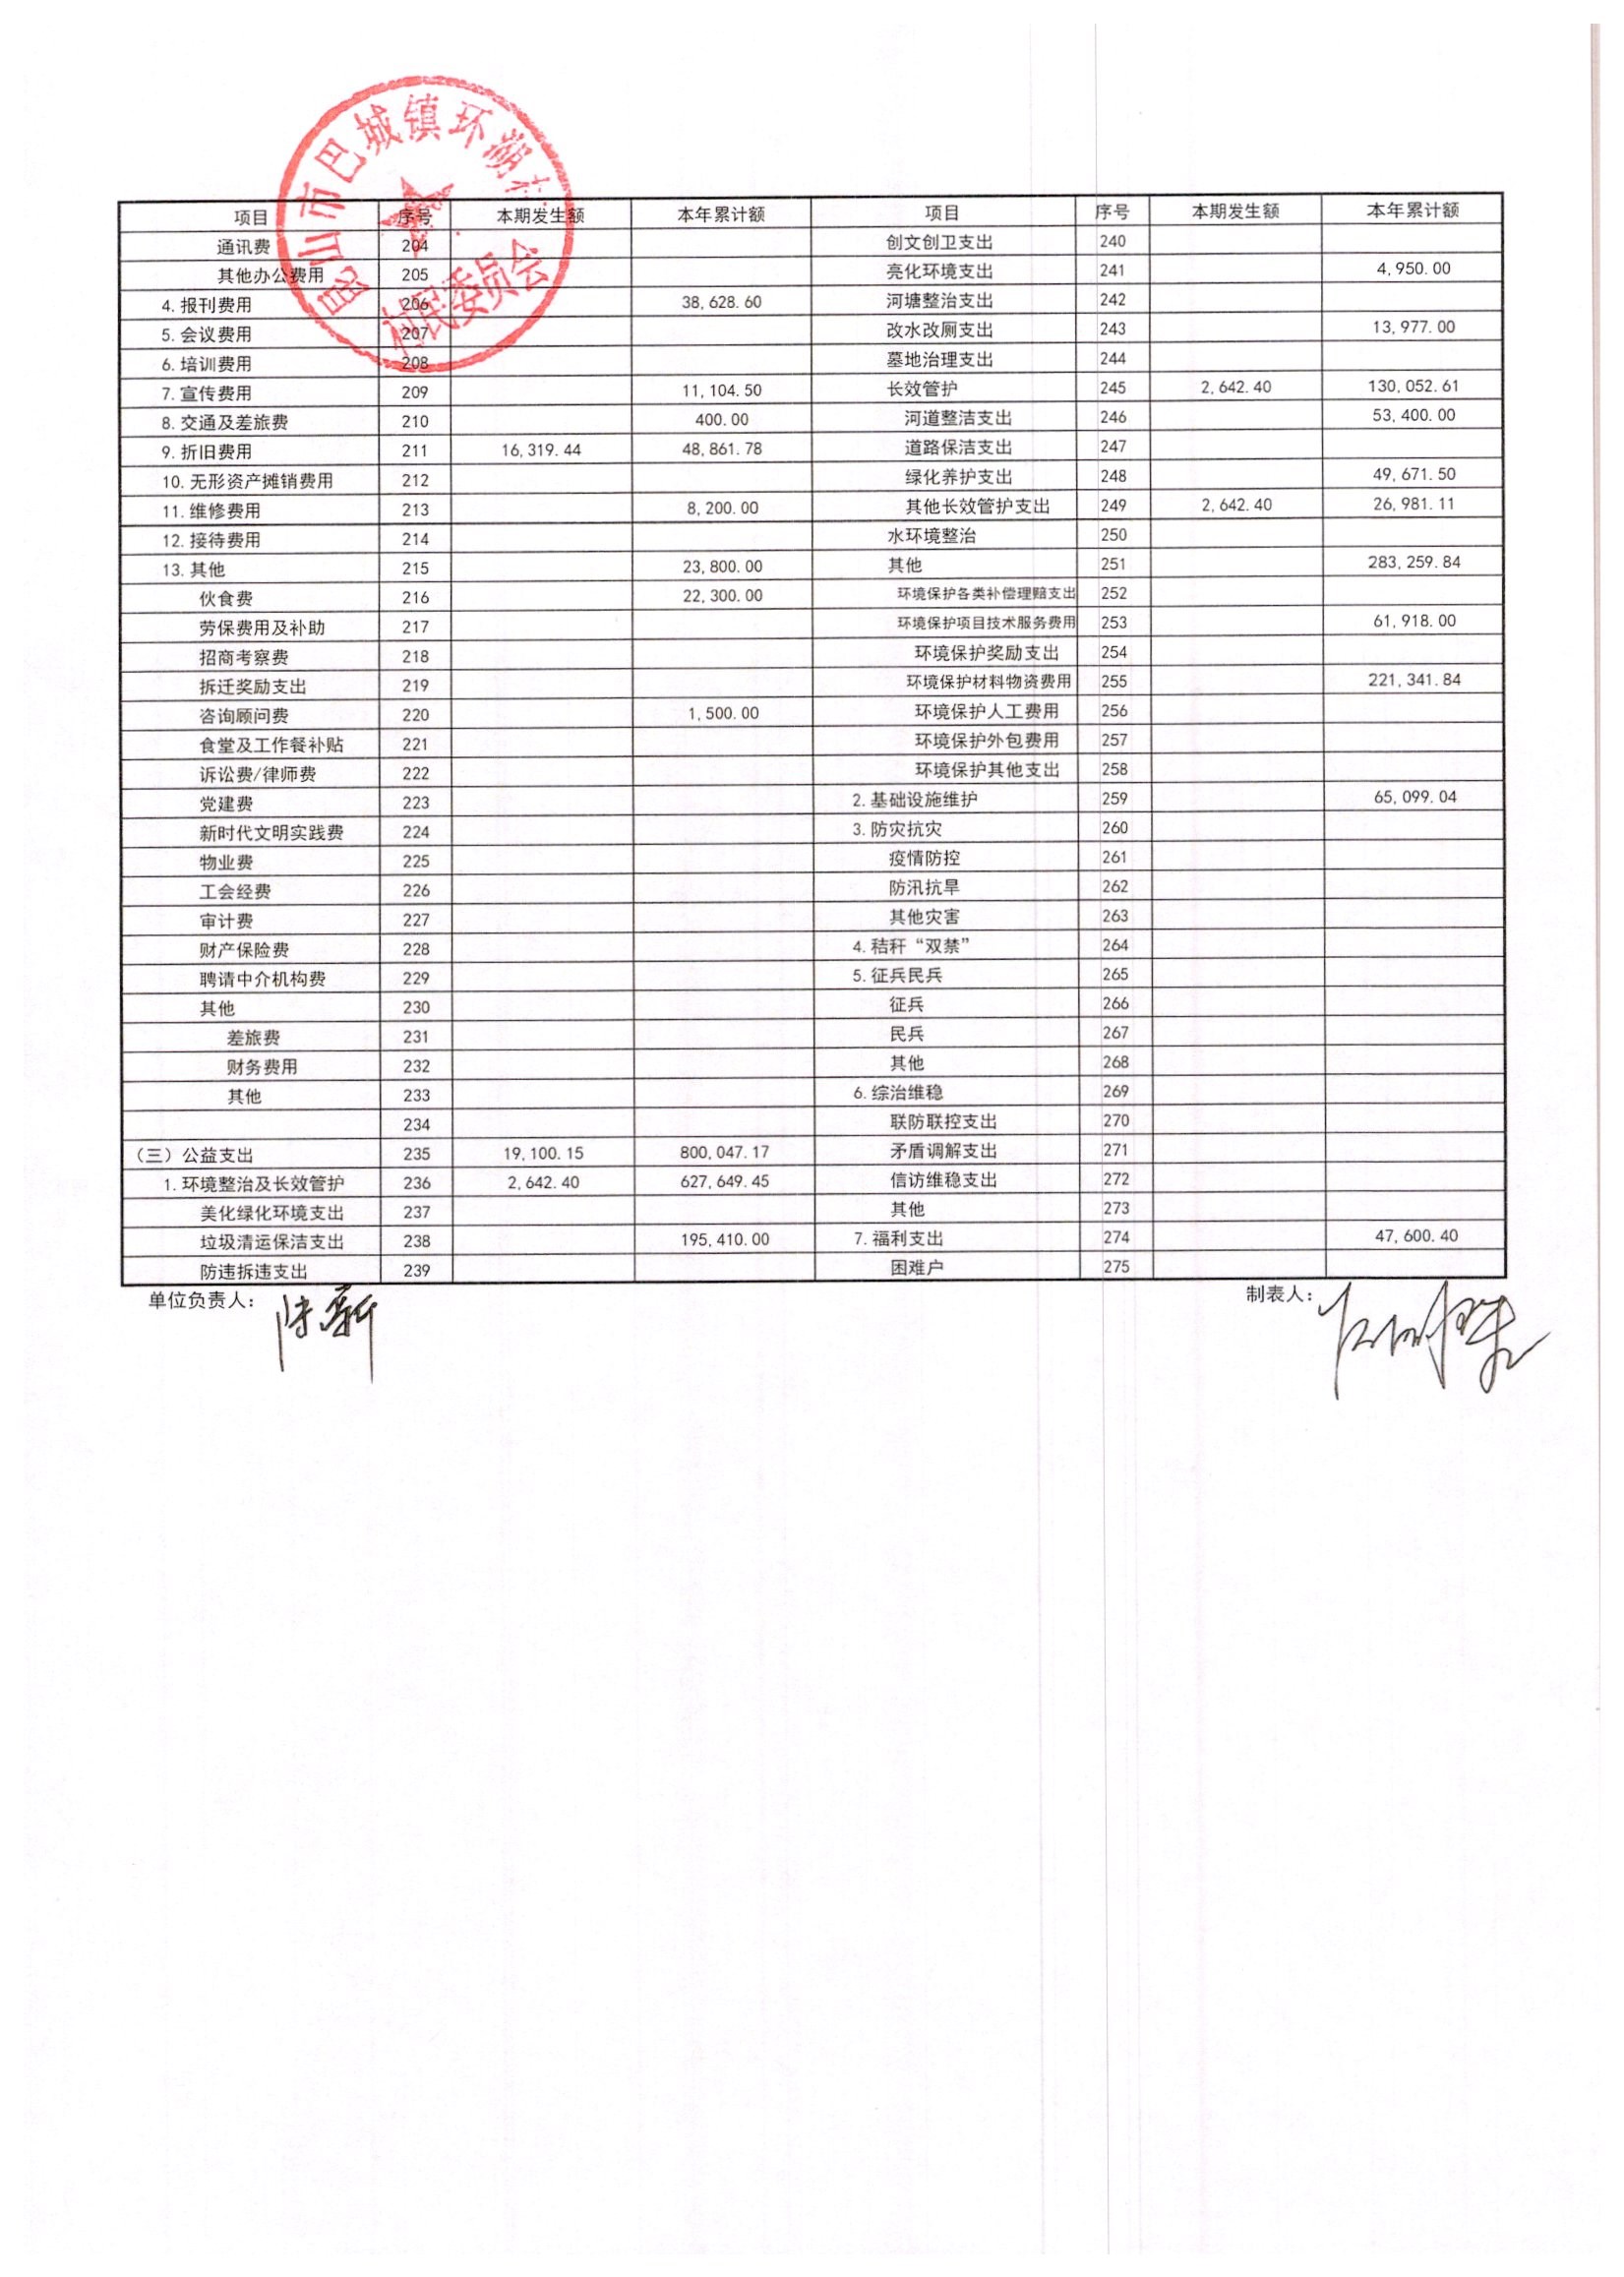 昆山市巴城镇环湖村
村民委员会
项目 序号 本期发生额 本年累计额 项目 序号 本期发生额 本年累计额
通讯费 204 创文创卫支出 240
其他办公费用 205 亮化环境支出 241 4,950.00
4.报刊费用 206 38,628.60 河塘整治支出 242
5.会议费用 207 改水改厕支出 243 13,977.00
6.培训费用 208 墓地治理支出 244
7.宣传费用 209 11,104.50 长效管护 245 2,642.40 130,052.61
8.交通及差旅费 210 400.00 河道整洁支出 246 53,400.00
9.折旧费用 211 16,319.44 48,861.78 道路保洁支出 247
10.无形资产摊销费用 212 绿化养护支出 248 49,671.50
11.维修费用 213 8,200.00 其他长效管护支出 249 2,642.40 26,981.11
12.接待费用 214 水环境整治 250
13.其他 215 23,800.00 其他 251 283,259.84
伙食费 216 22,300.00 环境保护各类补偿理赔支出 252
劳保费用及补助 217 环境保护项目技术服务费用 253 61,918.00
招商考察费 218 环境保护奖励支出 254
拆迁奖励支出 219 环境保护材料物资费用 255 221,341.84
咨询顾问费 220 1,500.00 环境保护人工费用 256
食堂及工作餐补贴 221 环境保护外包费用 257
诉讼费/律师费 222 环境保护其他支出 258
党建费 223 2.基础设施维护 259 65,099.04
新时代文明实践费 224 3.防灾抗灾 260
物业费 225 疫情防控 261
工会经费 226 防汛抗旱 262
审计费 227 其他灾害 263
财产保险费 228 4.秸秆“双禁” 264
聘请中介机构费 229 5.征兵民兵 265
其他 230 征兵 266
差旅费 231 民兵 267
财务费用 232 其他 268
其他 233 6.综治维稳 269
234 联防联控支出 270
（三）公益支出 235 19,100.15 800,047.17 矛盾调解支出 271
1.环境整治及长效管护 236 2,642.40 627,649.45 信访维稳支出 272
美化绿化环境支出 237 其他 273
垃圾清运保洁支出 238 195,410.00 7.福利支出 274 47,600.40
防违拆违支出 239 困难户 275
单位负责人： 制表人：